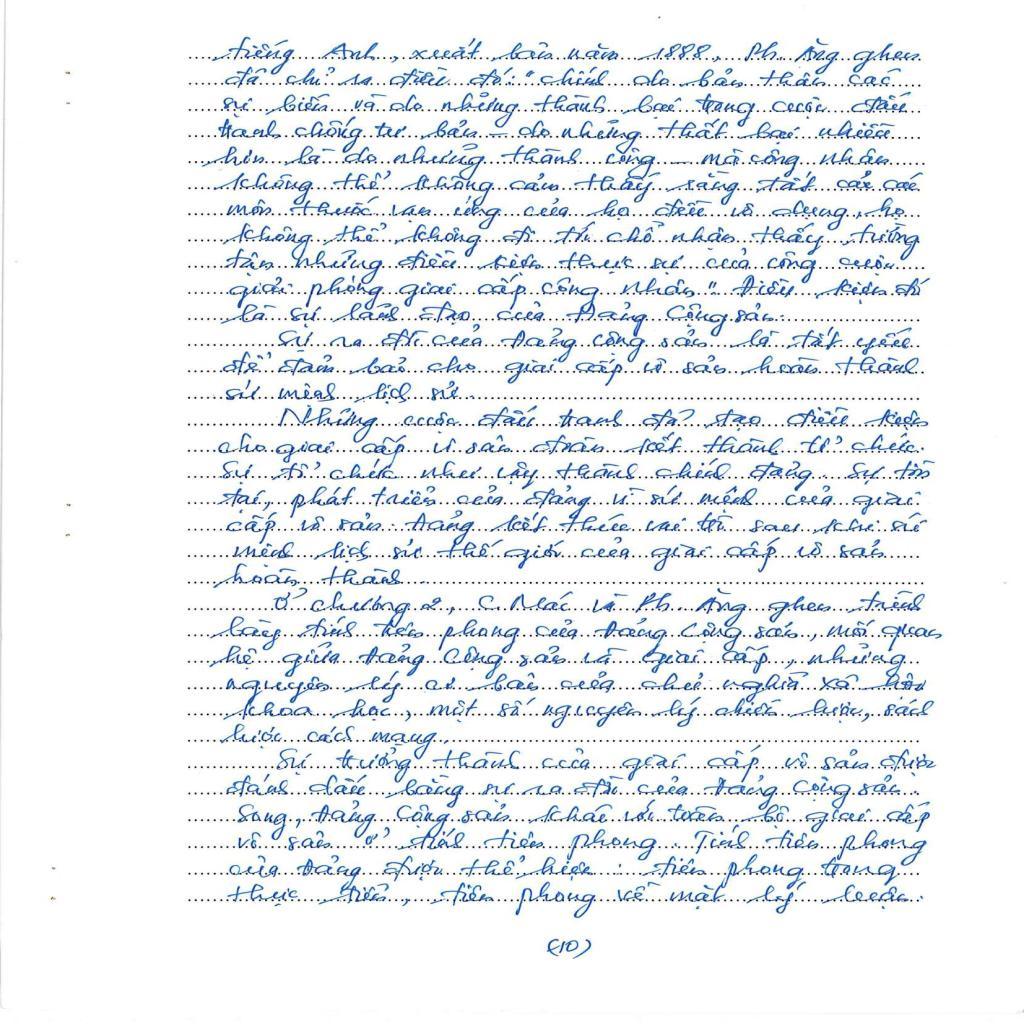 tiếng Anh, xuất bản năm 1888, Ph. Ăng ghen
đã chỉ ra điều đó: "chính do bản thân các
sự biến và do những thành bại trong cuộc đấu
tranh chống tư bản - do những thất bại nhiều
hơn là do những thành công - mà công nhân
không thể không cảm thấy rằng tất cả các
môn thuốc vạn ứng của họ đều vô dụng, họ
không thể không đi tới chỗ nhận thấy tường
tận những điều kiện thực sự của công cuộc
giải phóng giai cấp công nhân" Điều kiện đó
là sự lãnh đạo của Đảng Cộng sản.
Sự ra đời của Đảng cộng sản là tất yếu
để đảm bảo cho giai cấp vô sản hoàn thành
sứ mệnh lịch sử.
Những cuộc đấu tranh đã tạo điều kiện
cho giai cấp vô sản đoàn kết thành tổ chức.
Sự tổ chức như vậy thành chính đảng. Sự tồn
tại, phát triển của đảng vì sứ mệnh của giai
cấp vô sản. Đảng kết thúc vai trò sau khi sứ
mệnh lịch sử thế giới của giai cấp vô sản
hoàn thành.
Ở chương 2, C. Mác và Ph. Ăng ghen trình
bày tính tiên phong của Đảng Cộng sản, mối quan
hệ giữa Đảng Cộng sản và giai cấp, những
nguyên lý cơ bản của chủ nghĩa xã hội
khoa học, một số nguyên lý chiến lược, sách
lược cách mạng.
Sự trưởng thành của giai cấp vô sản được
đánh dấu bằng sự ra đời của Đảng Cộng sản.
Song, Đảng Cộng sản khác với toàn bộ giai cấp
vô sản ở tính tiên phong. Tính tiên phong
của Đảng được thể hiện: tiên phong trong
thực tiễn, tiên phong về mặt lý luận.
(10)